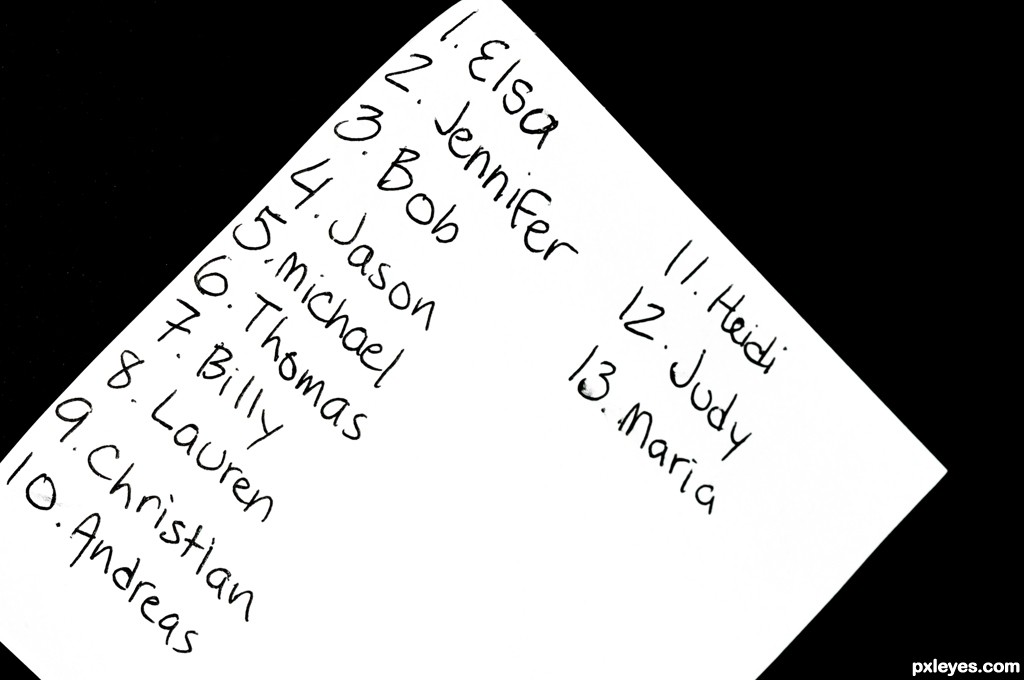 1. Elsa
2. Jennifer
3. Bob
4. Jason
5. Michael
6. Thomas
7. Billy
8. Lauren
9. Christian
10. Andreas
11. Heidi
12. Judy
13. Maria
pxleyes.com